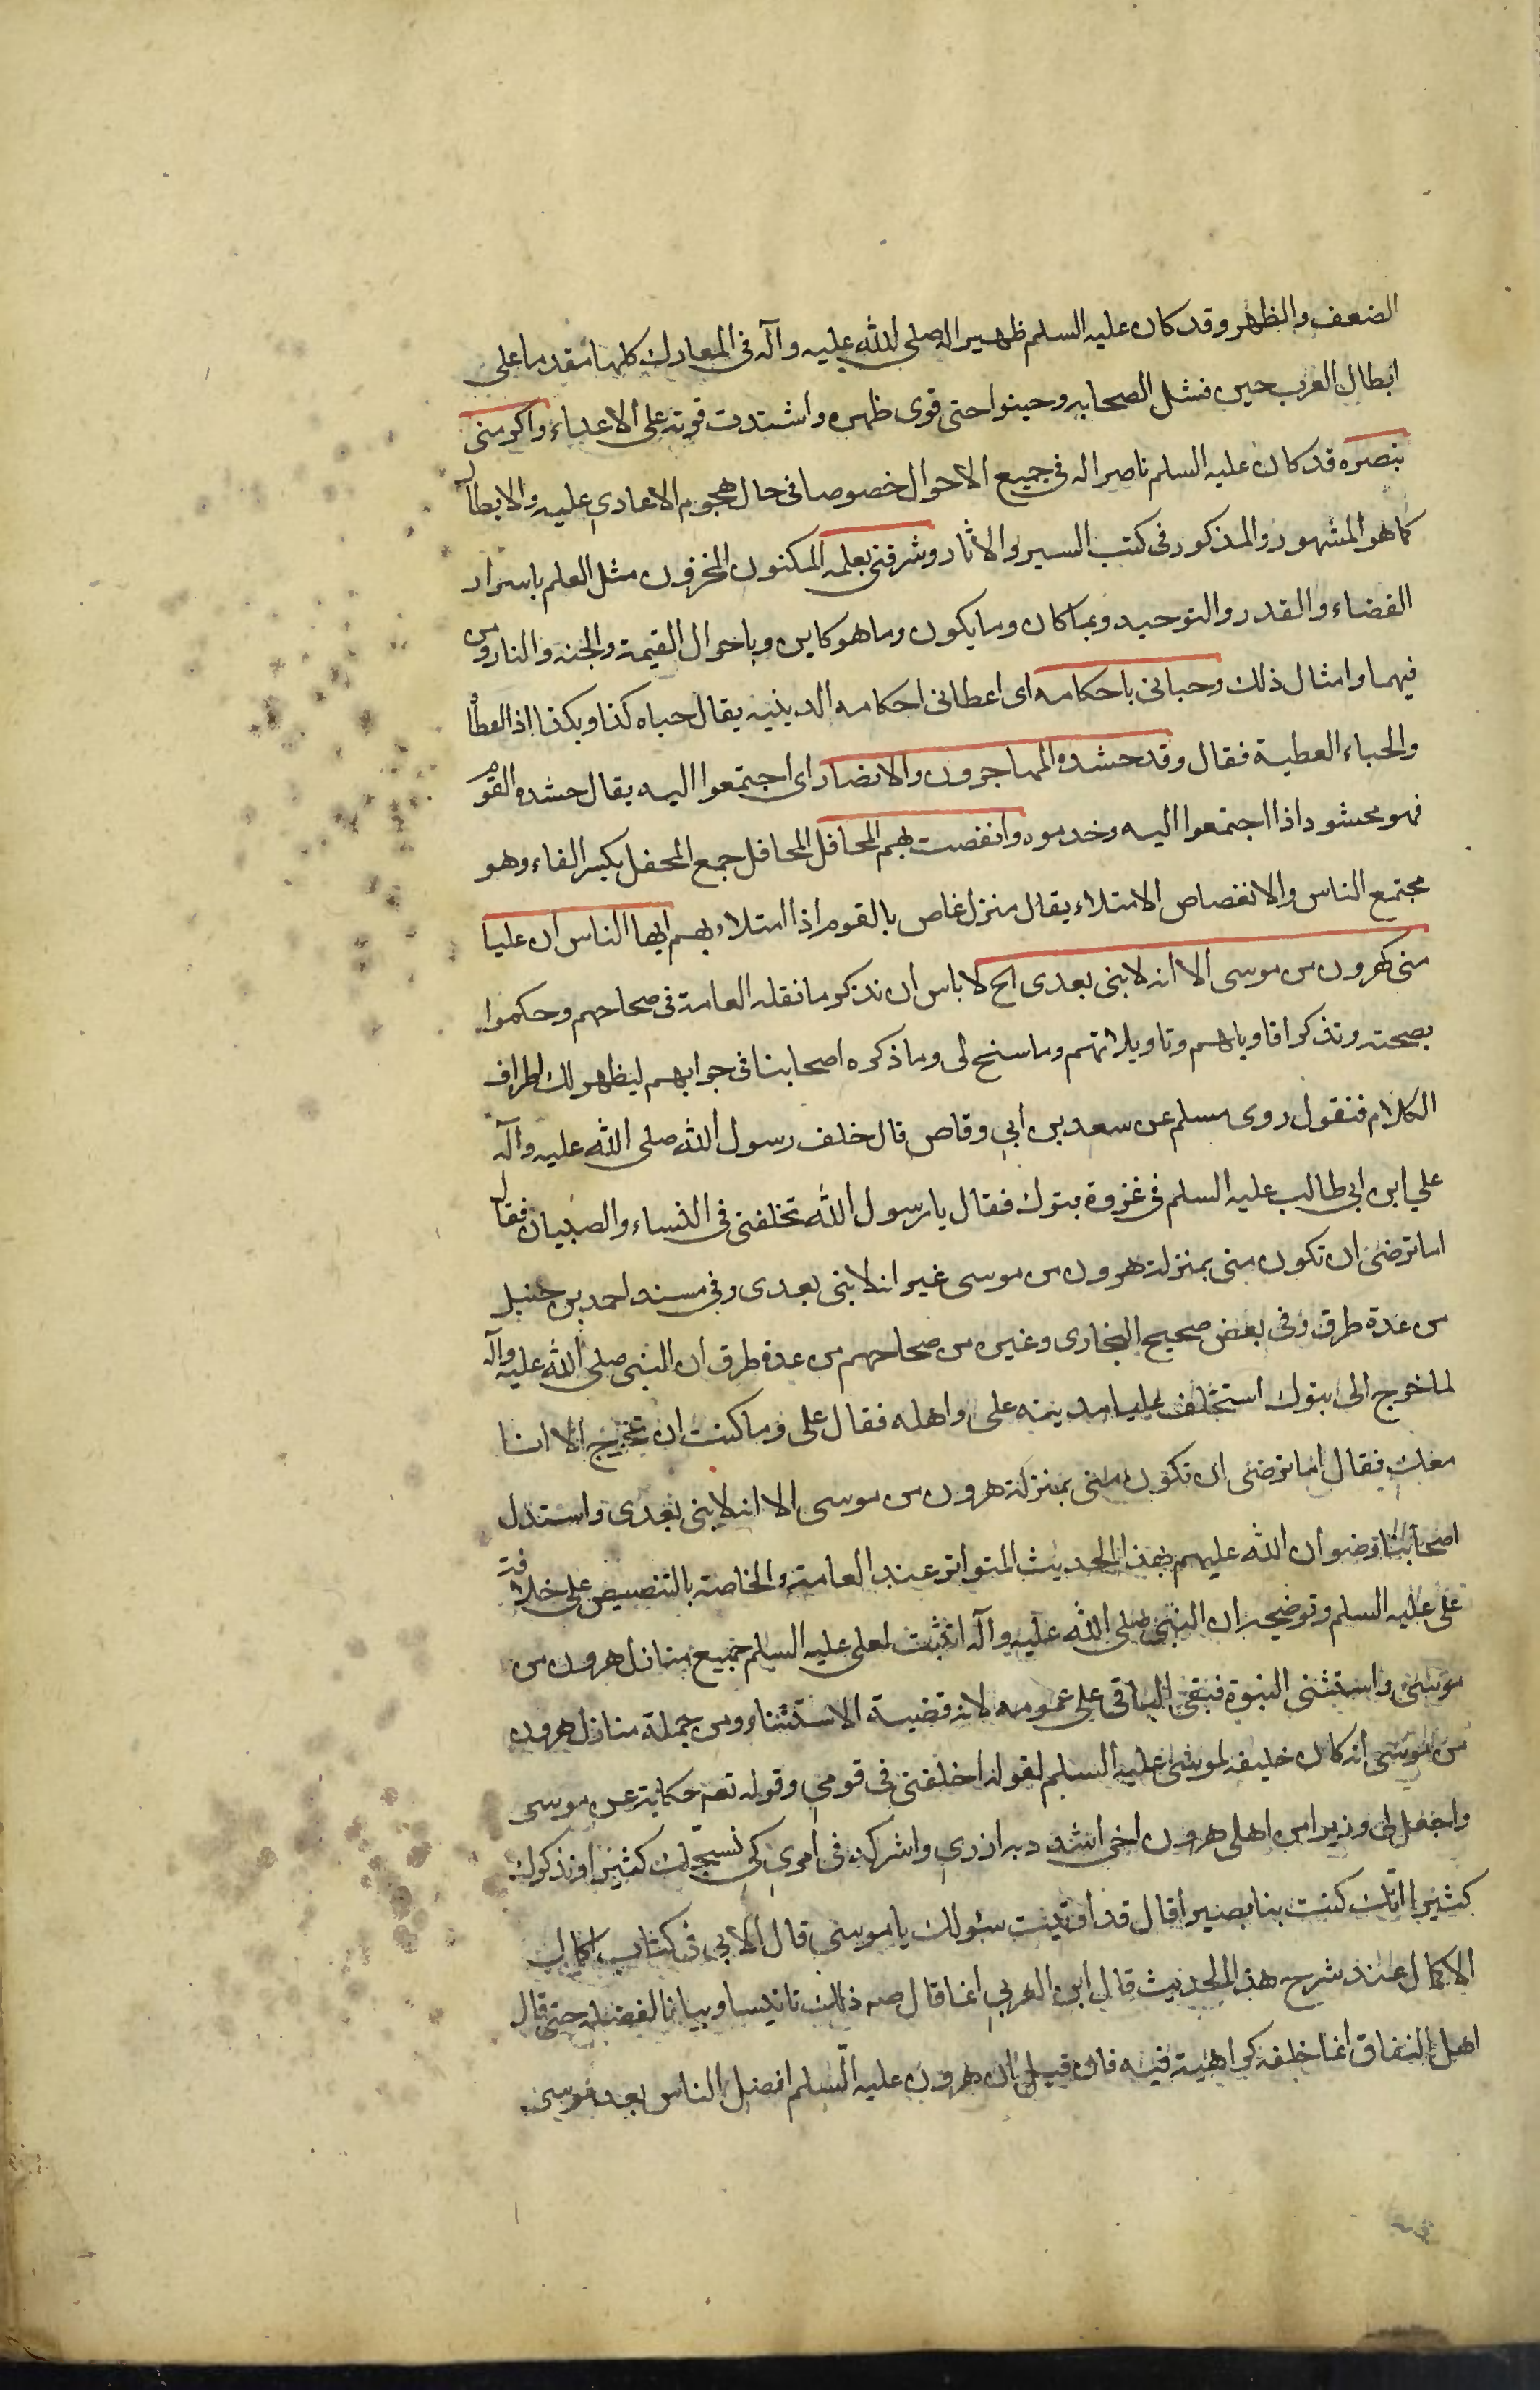 الضعف والظهر وقد كان عليه السلم ظهيرا له صلى الله عليه وآله فى المعارك كلها مقدما على
ابطال العرب حين فشل الصحابه وجبنوا حتى قوى ظهره واشتدت قوته على الاعداء واكرمنى
بنصره قد كان عليه السلم ناصرا له فى جميع الاحوال خصوصا فى حال هجوم الاعادي عليه والابطال
كما هو المشهور والمذكور فى كتب السير والاثار وشرفنى بعلمه المكنون المخزون مثل العلم باسرار
القضاء والقدر والتوحيد وبما كان وما يكون وما هو كاين وباحوال القيمة والجنه والنار ومن
فيهما وامثال ذلك وحبانى باحكامه اى اعطانى احكامه الدينيه يقال حباه كذا وبكذا اذا اعطاه
والحباء العطية فقال وقد حشده المهاجرون والانصار اى اجتمعوا اليه يقال حشده القوم
فهو محشود اذا اجتمعوا اليه وخدموه وانغصت بهم المحافل المحافل جمع المحفل بكسر الفاء وهو
مجتمع الناس والانغصاص الامتلاء يقال منزل غاص بالقوم اذا امتلاء بهم ايها الناس ان عليا
منى كهرون من موسى الا انه لا بنى بعدى الخ لا باس ان نذكر ما نقله العامة فى صحاحهم وحكموا
بصحته ونذكر اقاويلهم وتاويلاتهم وما سنح لى وما ذكره اصحابنا فى جوابهم ليظهر لك اطراف
الكلام فنقول روى مسلم عن سعد بن ابي وقاص قال خلف رسول الله صلى الله عليه وآله
علي ابن ابى طالب عليه السلم فى غزوة بتوك فقال يا رسول الله تخلفنى فى النساء والصبيان فقال
اما ترضى ان تكون منى بمنزلة هرون من موسى غير انه لا بنى بعدى وفى مسند احمد بن حنبل
من عدة طرق وفى بعض صحيح البخارى وغيره من صحاحهم من عدة طرق ان النبى صلى الله عليه وآله
لما خرج الى بتوك استخلف عليا مدينه على واهله فقال على وما كنت ان تخرج الا انا
معك فقال اما ترضى ان تكون منى بمنزلة هرون من موسى الا انه لا بنى بعدى واستدل
اصحابنا رضوان الله عليهم بهذا الحديث المتواتر عند العامة والخاصة بالتنصيص على خلافة
على عليه السلم وتوضيحه ان النبى صلى الله عليه وآله اثبت لعلى عليه السلم جميع منازل هرون من
موسى واستثنى النبوة فبقى الباقى على عمومه لانه قضية الاستثناء ومن جملة منازل هرون
من موسى انه كان خليفه لموسى عليه السلم لقوله اخلفنى فى قومي وقوله تعم حكاية عن موسى
واجعل لى وزيرا من اهلى هرون اخى اشدد به ازري واشركه فى امري كي نسبحك كثيرا ونذكرك
كثيرا انك كنت بنا بصيرا قال قد اوتيت سئولك يا موسى قال الابي فى كتاب اكمال
الاكمال عند شرح هذا الحديث قال ابن العربي انما قال صه ذلك تانيسا وبيانا لفضله حتى قال
اهل النفاق انما خلفه كراهية فيه فان قيل ان هرون عليه السلم افضل الناس بعد موسى